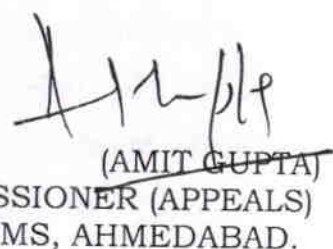 (AMIT GUPTA)
SSIONER (APPEALS)
MS, AHMEDABAD.